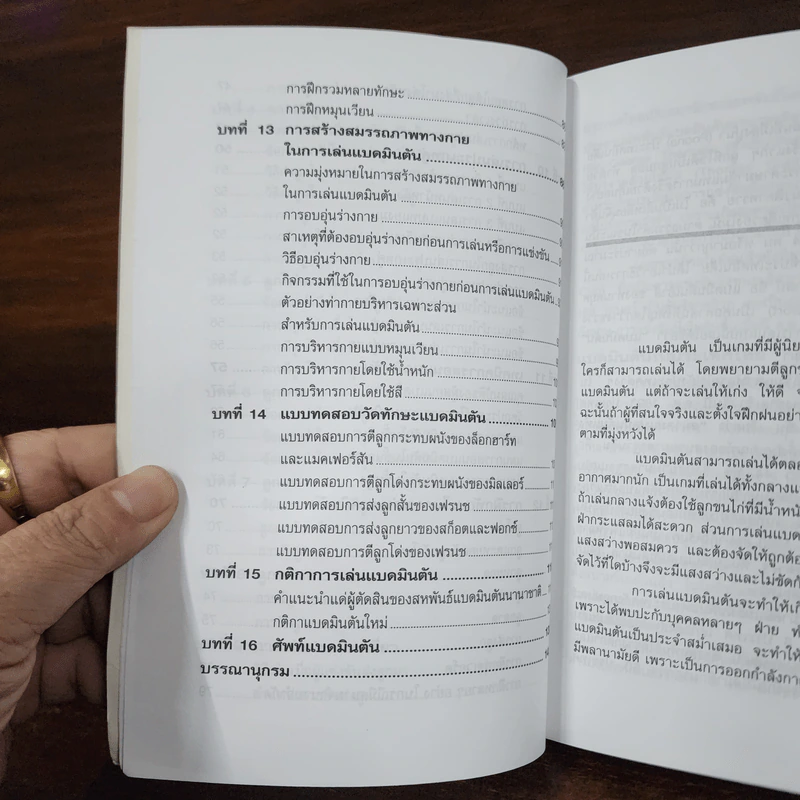 การฝึกรวมหลายทักษะ
การฝึกหมุนเวียน
บทที่ 13 การสร้างสมรรถภาพทางกาย
ในการเล่นแบดมินตัน
ความมุ่งหมายในการสร้างสมรรถภาพทางกาย
ในการเล่นแบดมินตัน
การอบอุ่นร่างกาย
สาเหตุที่ต้องอบอุ่นร่างกายก่อนการเล่นหรือการแข่งขัน
วิธีอบอุ่นร่างกาย
กิจกรรมที่ใช้ในการอบอุ่นร่างกายก่อนการเล่นแบดมินตัน
ตัวอย่างท่ากายบริหารเฉพาะส่วน
สำหรับการเล่นแบดมินตัน
การบริหารกายแบบหมุนเวียน
การบริหารกายโดยใช้น้ำหนัก
การบริหารกายโดยใช้สี
บทที่ 14 แบบทดสอบวัดทักษะแบดมินตัน
แบบทดสอบการตีลูกกระทบผนังของล็อกฮาร์ท
และแมคเฟอร์สัน
แบบทดสอบการตีลูกโด่งกระทบผนังของมิลเลอร์
แบบทดสอบการส่งลูกสั้นของเฟรนช
แบบทดสอบการส่งลูกยาวของสก็อตและฟอกซ์
แบบทดสอบการตีลูกโด่งของเฟรนช
บทที่ 15 กติกาการเล่นแบดมินตัน
คำแนะนำแด่ผู้ตัดสินของสหพันธ์แบดมินตันนานาชาติ
กติกาแบดมินตันใหม่
บทที่ 16 ศัพท์แบดมินตัน
บรรณานุกรม
แบดมินตัน เป็นเกมที่มีผู้นิย
ใครก็สามารถเล่นได้ โดยพยายามตีลูก
แบดมินตัน แต่ถ้าจะเล่นให้เก่ง ให้ดี
ฉะนั้นถ้าผู้ที่สนใจจริงและตั้งใจฝึกฝนอย่า
ตามที่มุ่งหวังได้
แบดมินตันสามารถเล่นได้ตลอ
อากาศมากนัก เป็นเกมที่เล่นได้ทั้งกลางแ
ถ้าเล่นกลางแจ้งต้องใช้ลูกขนไก่ที่มีน้ำหนั
ฝ่ากระแสลมได้สะดวก ส่วนการเล่นแบด
แสงสว่างพอสมควร และต้องจัดให้ถูกต้อ
จัดไว้ที่ใดบ้างจึงจะมีแสงสว่างและไม่ขัดกั
การเล่นแบดมินตันจะทำให้เกิ
เพราะได้พบปะกับบุคคลหลายๆ ฝ่าย
แบดมินตันเป็นประจำสม่ำเสมอ จะทำให้
มีพลานามัยดี เพราะเป็นการออกกำลังกา